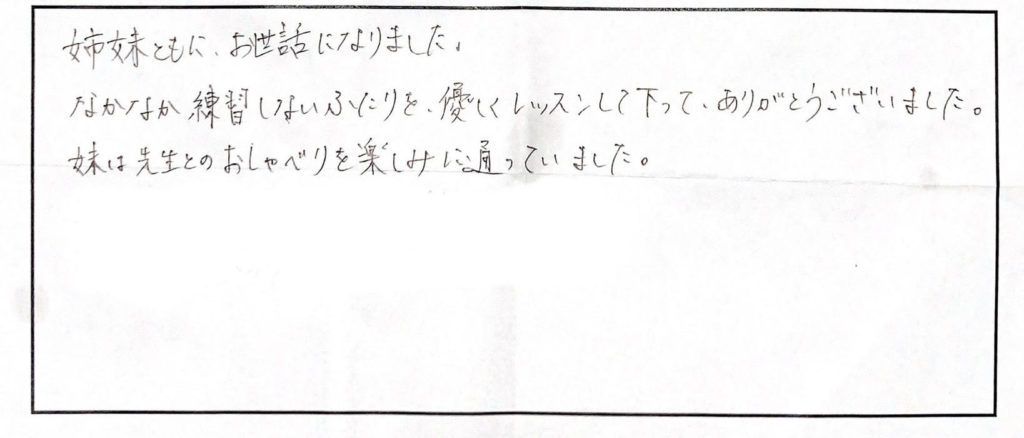 姉妹ともに、お世話になりました。
なかなか練習しないふたりを、優しくレッスンして下って、ありがとうございました。
妹は先生とのおしゃべりを楽しみに通っていました。